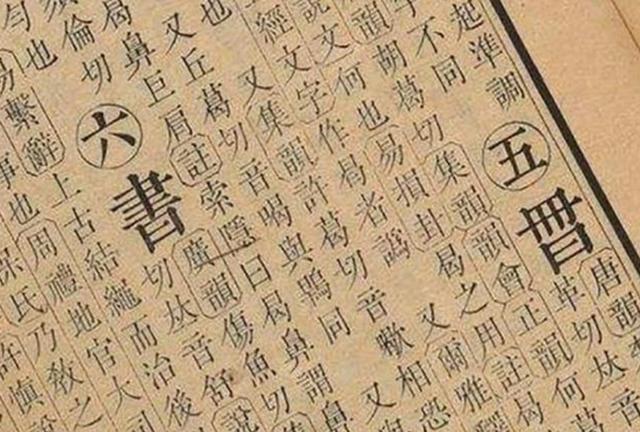 起準調
不同
五
唐韻
革切𠀤音
韻胡葛切集韻韻會正韻何
說文何也易損封曷之用註曷
經文字作曷者譌
又爾雅
又集韻許葛切音歇相恐
也丘葛切音喝與鶡同
又
曷鼻巨肩註索隱曰曷鼻謂鼻
倫切
六
書
廣韻傷魚切
切𠀤音舒
也
易繫辭上古結繩而治後
事也周禮地官大司
保氏乃敎之
許愼說